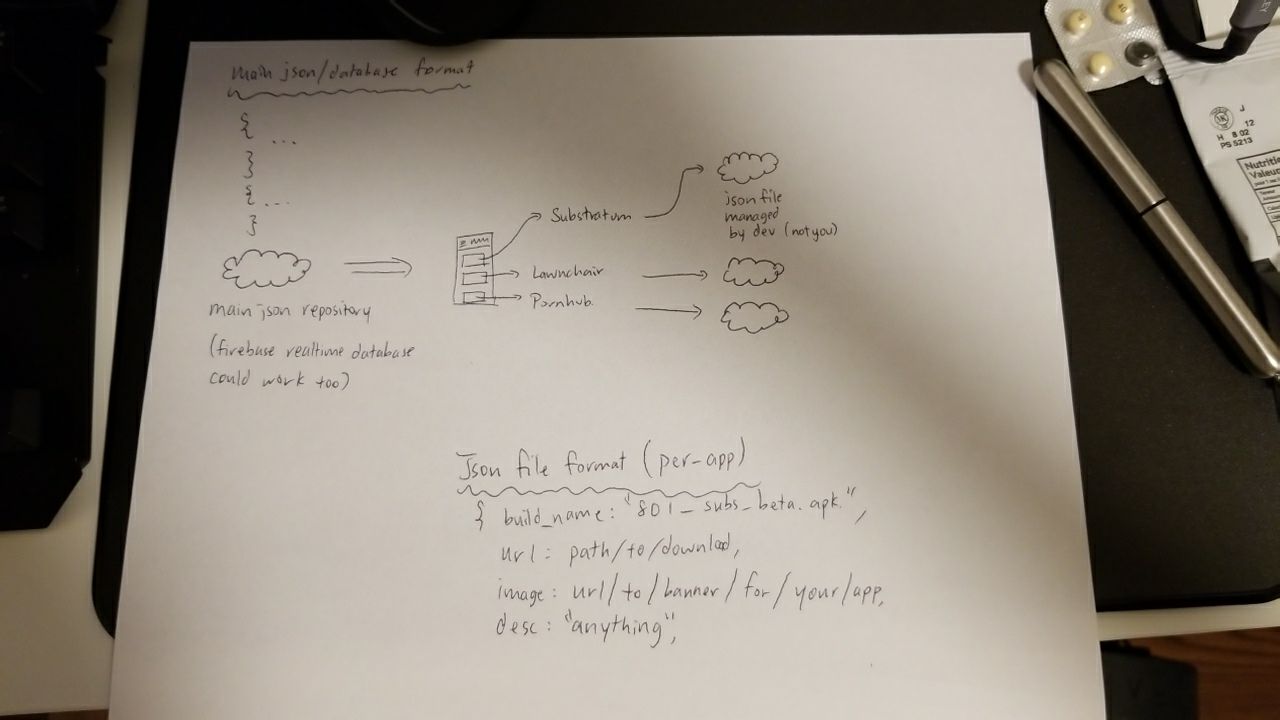 main json/database format
{ ...
}
{ ...
}
main json repository
(firebase realtime database
could work too)
Substratum
Lawnchair
Pornhub.
json file
managed
by dev (not you)
Json file format (per-app)
{ build_name: "801_subs_beta.apk.",
url: path/to/download,
image: url/to/banner/for/your/app,
desc: "anything",
J
12
H 8 02
PS 5213
Nutriti
Valeur